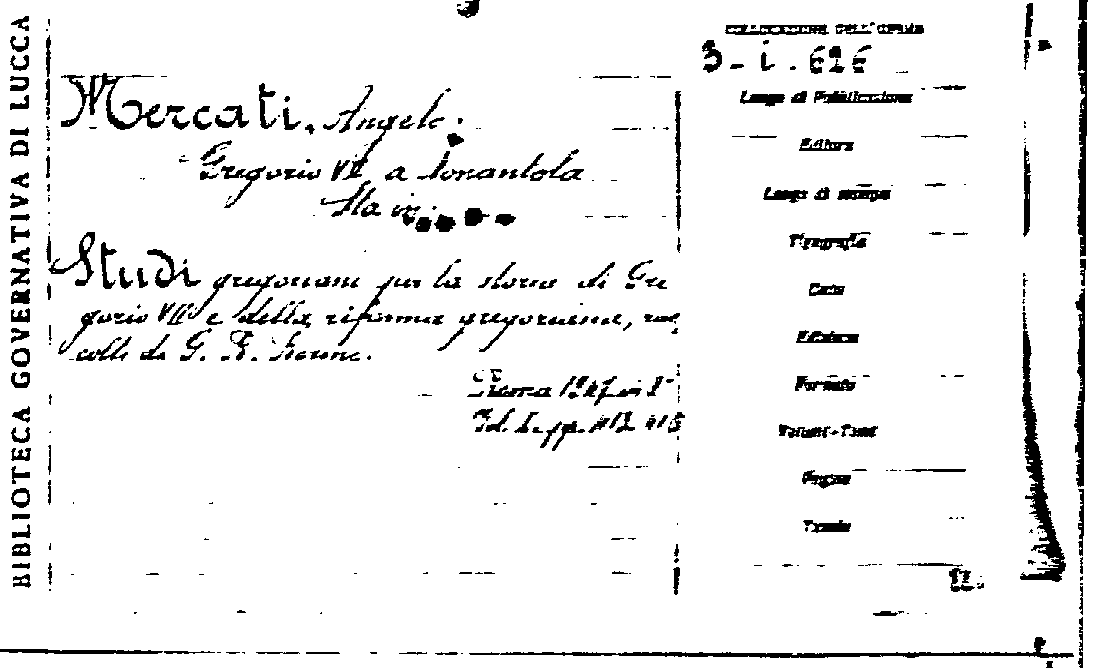 BIBLIOTECA GOVERNATIVA DI LUCCA
COLLOCAZIONE DELL'OPERA
3 - i . 626
Mercati, Angelo.
Gregorio VII a Nonantola
Sta in:
Studi gregoriani per la storia di Gre
gorio VII e della riforma gregoriana, rac
colti da G. B. Borino.
Roma 1947 in 8°
Vol. I. pp. 413-416
Luogo di Pubblicazione
Editore
Luogo di stampa
Tipografia
Data
Edizione
Formato
Volumi - Tomi
Pagine
Tavole